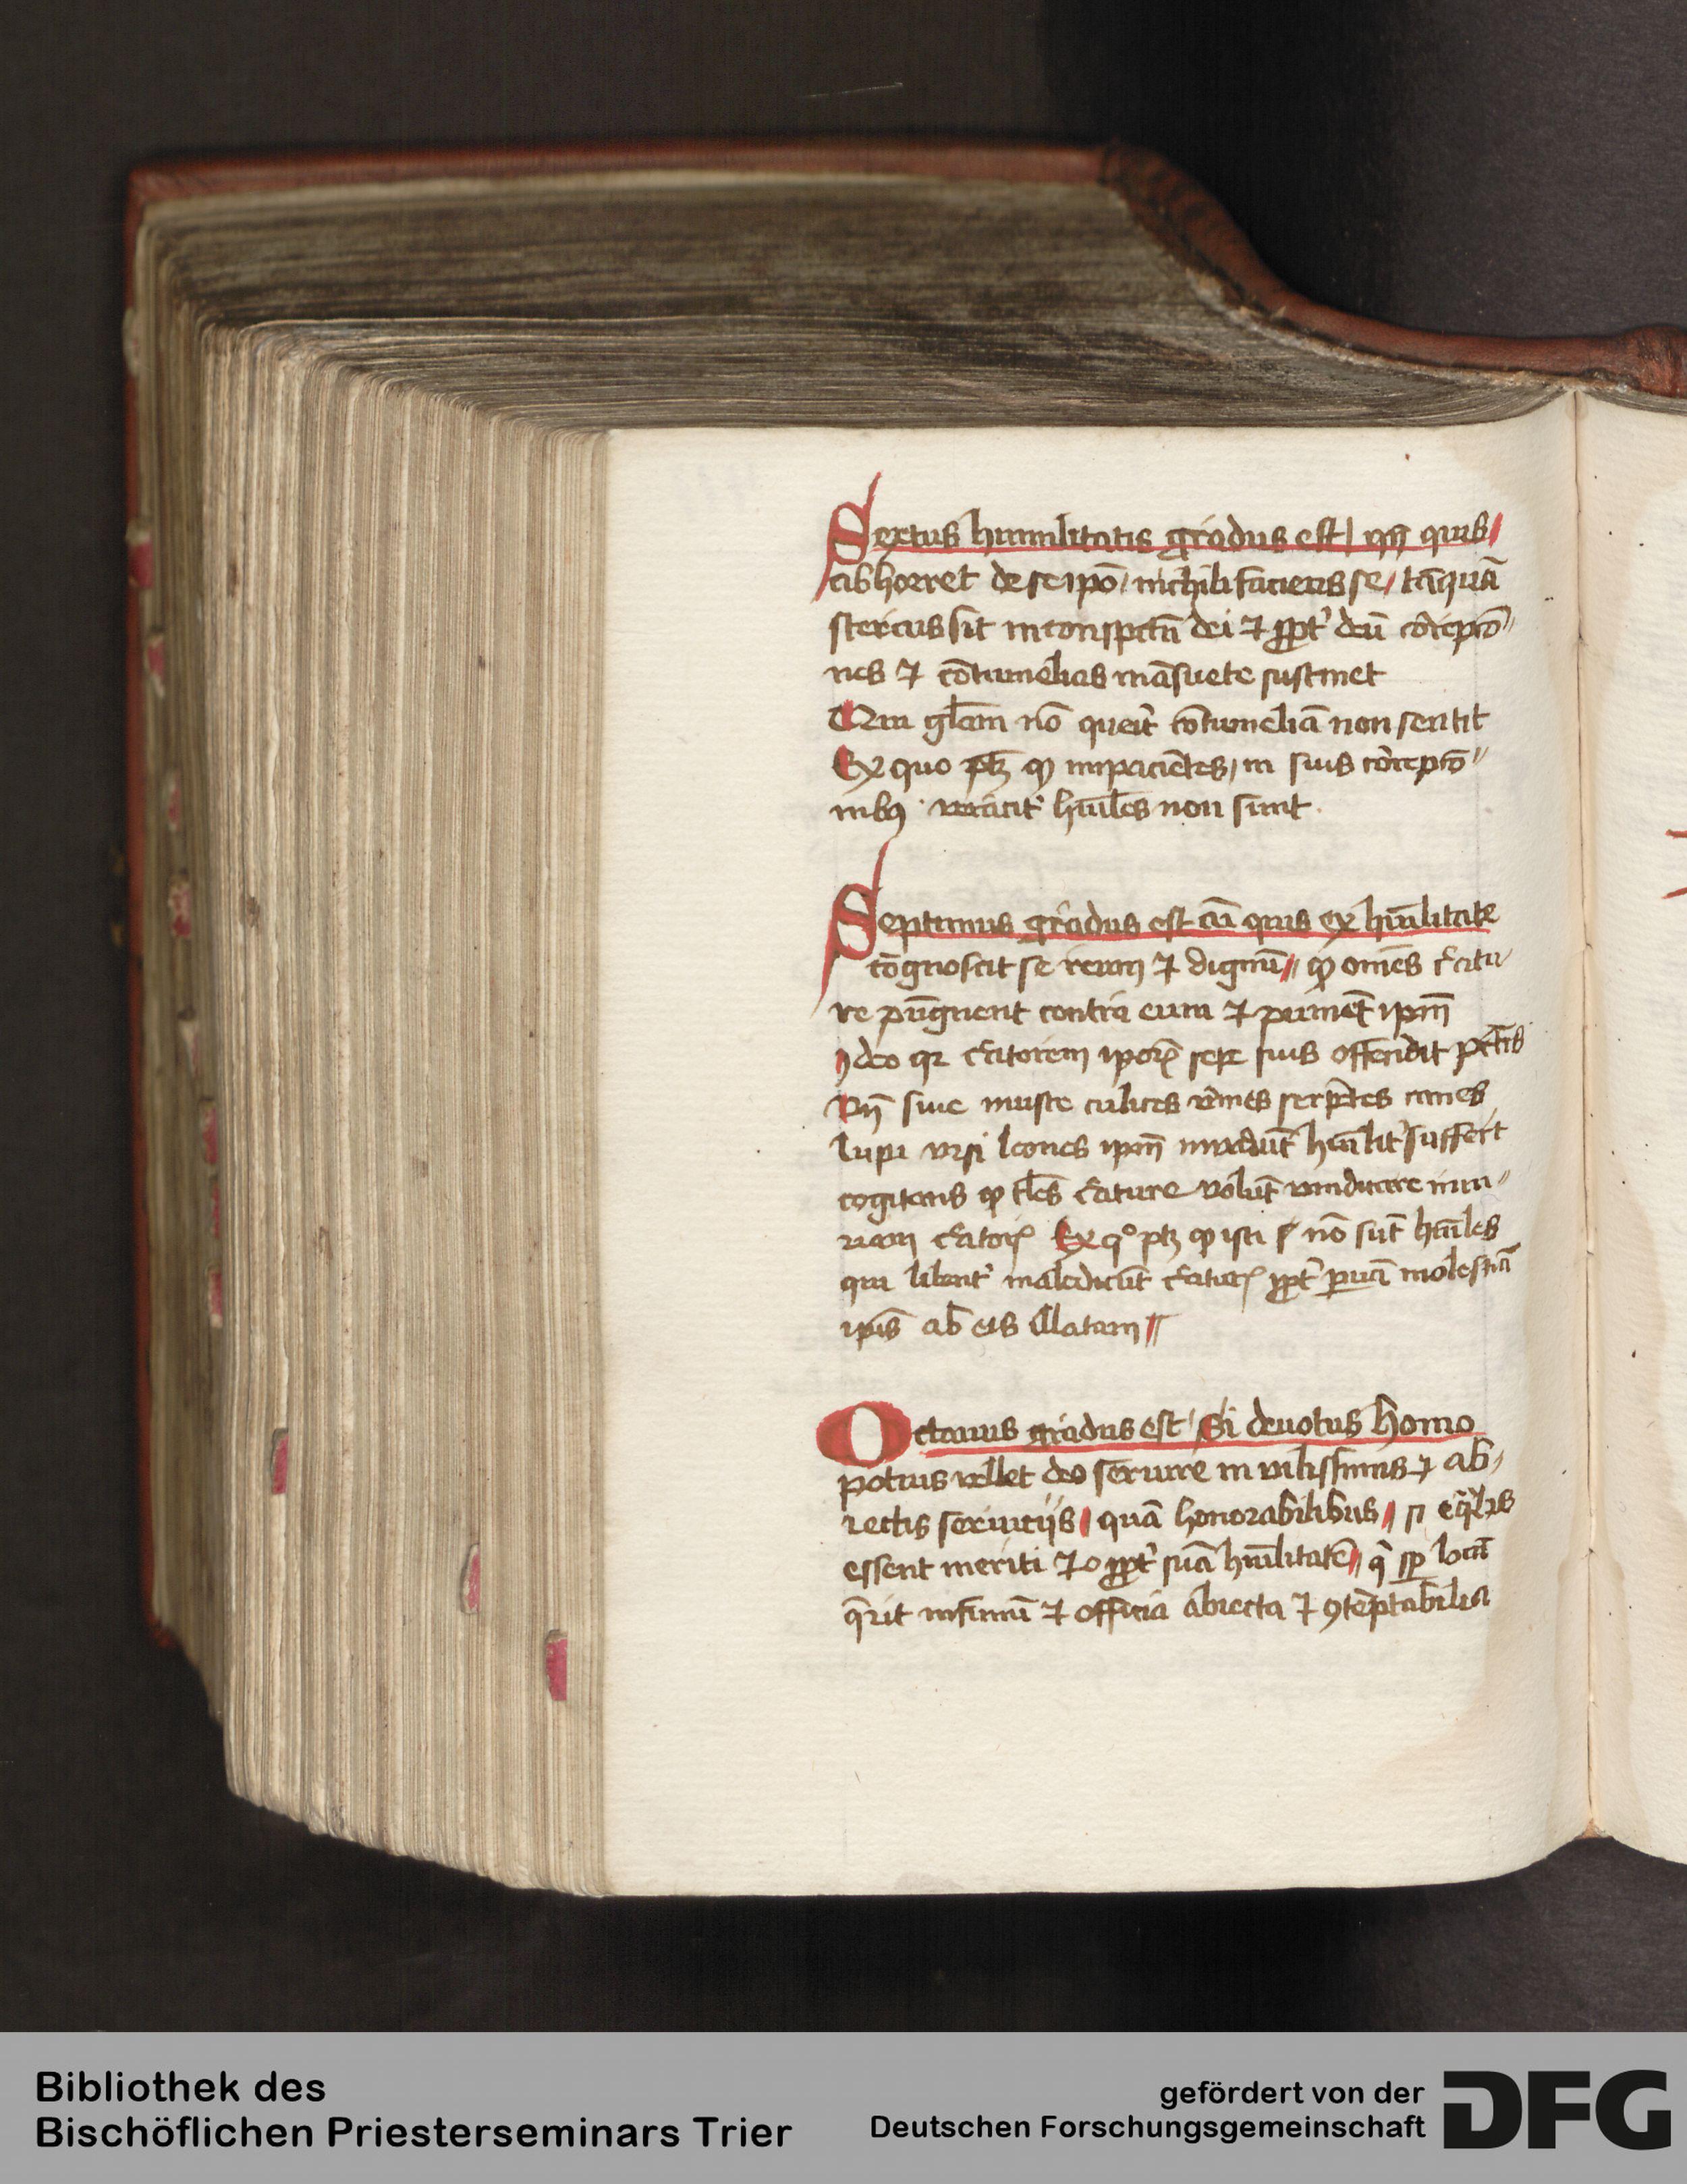 Sextus humilitatis gradus est qn̄ quis
abhorret de seipō nichili faciens se tāquā
stercus sit in conspc̄tu dei ⁊ ꝓpt' deū correpcō
nes ⁊ cōtumelias māsuete sustinet
Qui glām nō querit cōtumeliā non sentit
Ex quo ptꝫ ꝙ inpaciētes in suis correpcō
nibꝰ veracit' hūiles non sunt
Septimus gradus est cū quis ex hūilitate
cōgnoscit se reum ⁊ dignū ꝙ omēs c'atu
re pūgnent contra eum ⁊ puniēt ipm̄
Ideo qꝛ c'atorem ipoꝝ sepe suis offendit pctīs
Vn̄ siue musce culices v'mes serpētes canes
lupi vrsi leones ipm̄ inuadūt hūilit' suffert
cogitans ꝙ tl̄es c'ature volūt vindicare iniu
riam c'atoris Ex q° ptꝫ ꝙ isti nō sūt hūiles
qui libent' maledicūt c'aturis ꝓpt' paruā molestiā
ipis̄ ab eis illatam
Octauus gradus est Si deuotus homo
potius vellet deo seruire in vilissimis ⁊ ab
iectis seruicijs quā honorabilibus si eq̄lis
essent meriti ⁊ ꝓpt' suā hūilitatē sp̄ locū
q̄rit infimū ⁊ officia abiecta ⁊ ꝯtēptabilia
Bibliothek des
Bischöflichen Priesterseminars Trier
gefördert von der
Deutschen Forschungsgemeinschaft
DFG